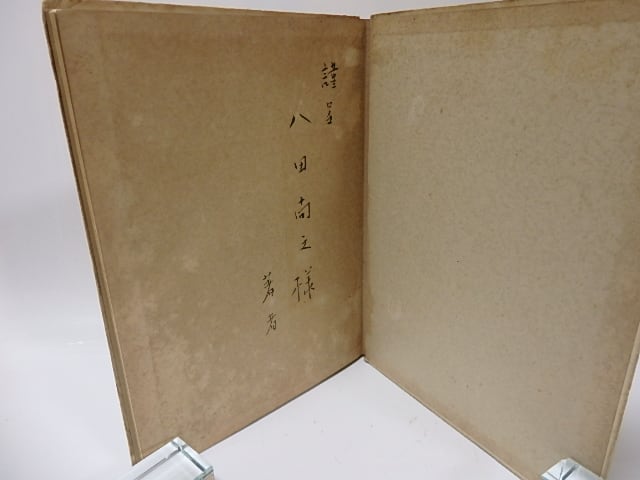 謹呈
八田尚之様
著者